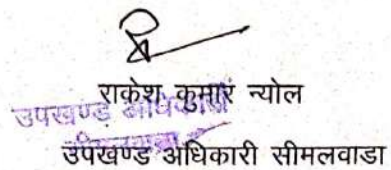 राकेश कुमार न्योल
उपखण्ड अधिकारी
सीमलवाडा
उपखण्ड अधिकारी सीमलवाडा